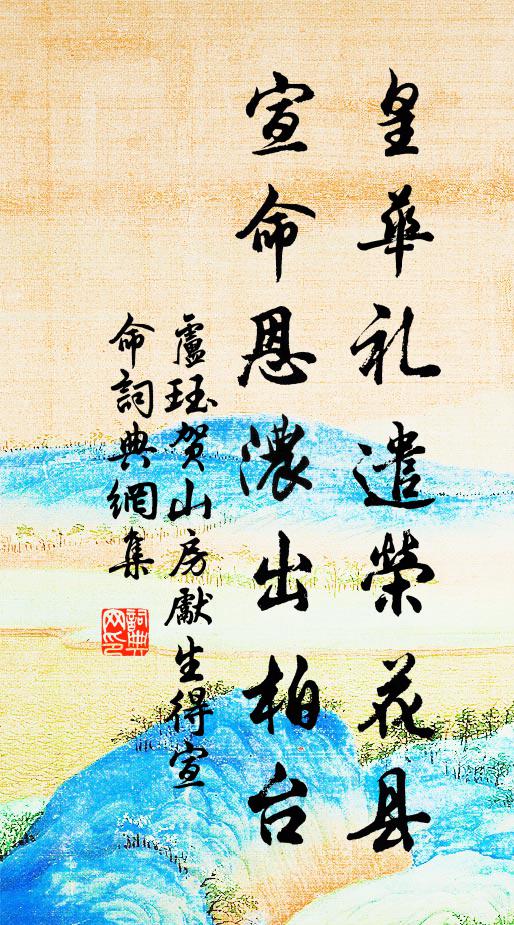 皇華礼遣榮花县
宣命恩濃出柏台
盧珏贺山房獻生得宣
命詞典網集
詞典
网印